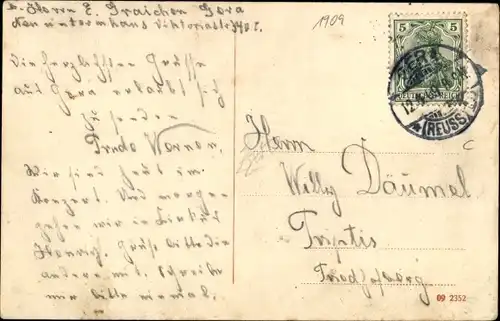 b. Herrn E. Graichen Gera
Neuuntermhaus Viktoriastr. 40 I.
1909
Die herzlichsten Grüsse
aus Gera erlaubt sich
zu senden
Wir sind heut im
Konzert. Und morgen
gehen wir in Zirkus
Henrich. Grüß bitte die
andern mit. Schreibe
mir bitte einmal.
5
DEUTSCHES REICH
GERA
(REUSS)
Herrn
Willy Däumel
Triptis
09 2352